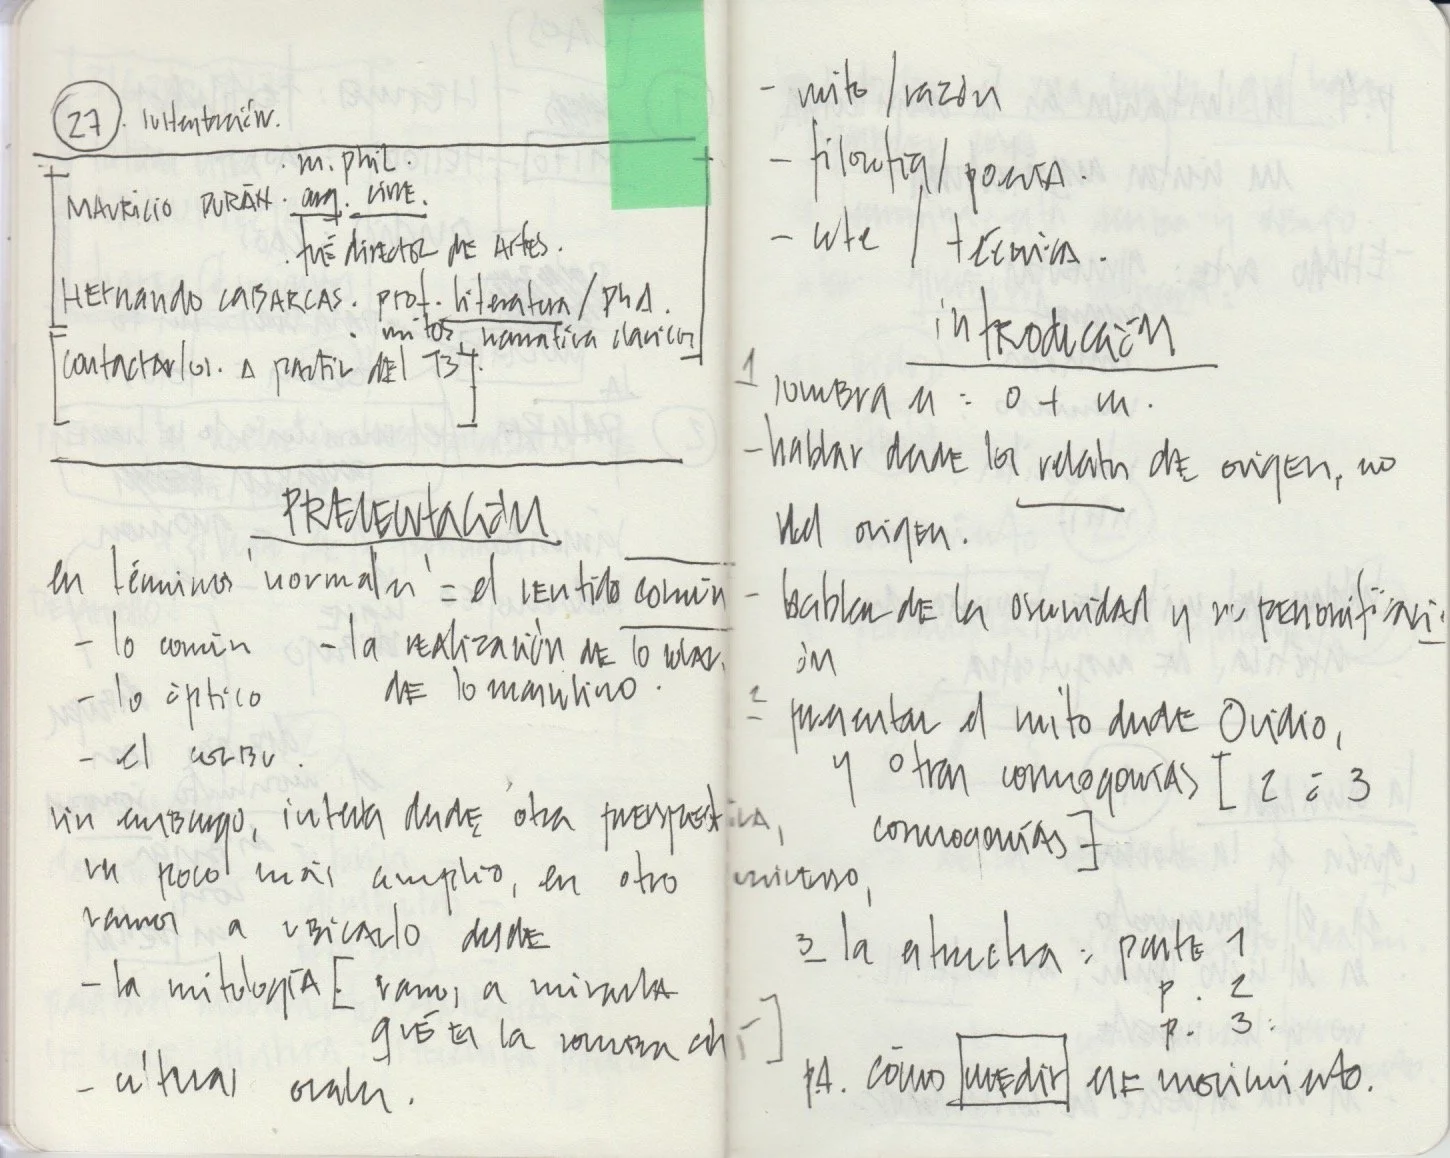 27. sustentación.
. m. phil.
MAURICIO DURÁN. arq. cine.
. fué director de Artes.
HERNANDO CABARCAS. prof. literatura / phd.
. mitos, narrativa clásicos
contactarlos. a partir del 13
PRESENTACIÓN
en términos 'normales' = el sentido común
- lo común - la realización de lo solar,
- lo óptico de lo masculino.
- el
sin embargo, interesa desde otra perspectiva,
un poco más amplio, en otro universo,
vamos a ubicarlo desde
- la mitología [ vamos a mirarla
qué es la sombra ahí ]
- culturas orales.
- mito / razón
- filosofía / poesía.
- arte / técnica.
introducción
1 sombra es = 0 + m.
- hablar desde los relatos de origen, no
del origen.
- hablar de la oscuridad y su personificaci
ón
2 presentar el mito desde Ovidio,
y otras cosmogonías [ 2 ó 3
cosmogonías ]
3 la estructura: parte 1
p. 2
p. 3:
p4. cómo medir ese movimiento.